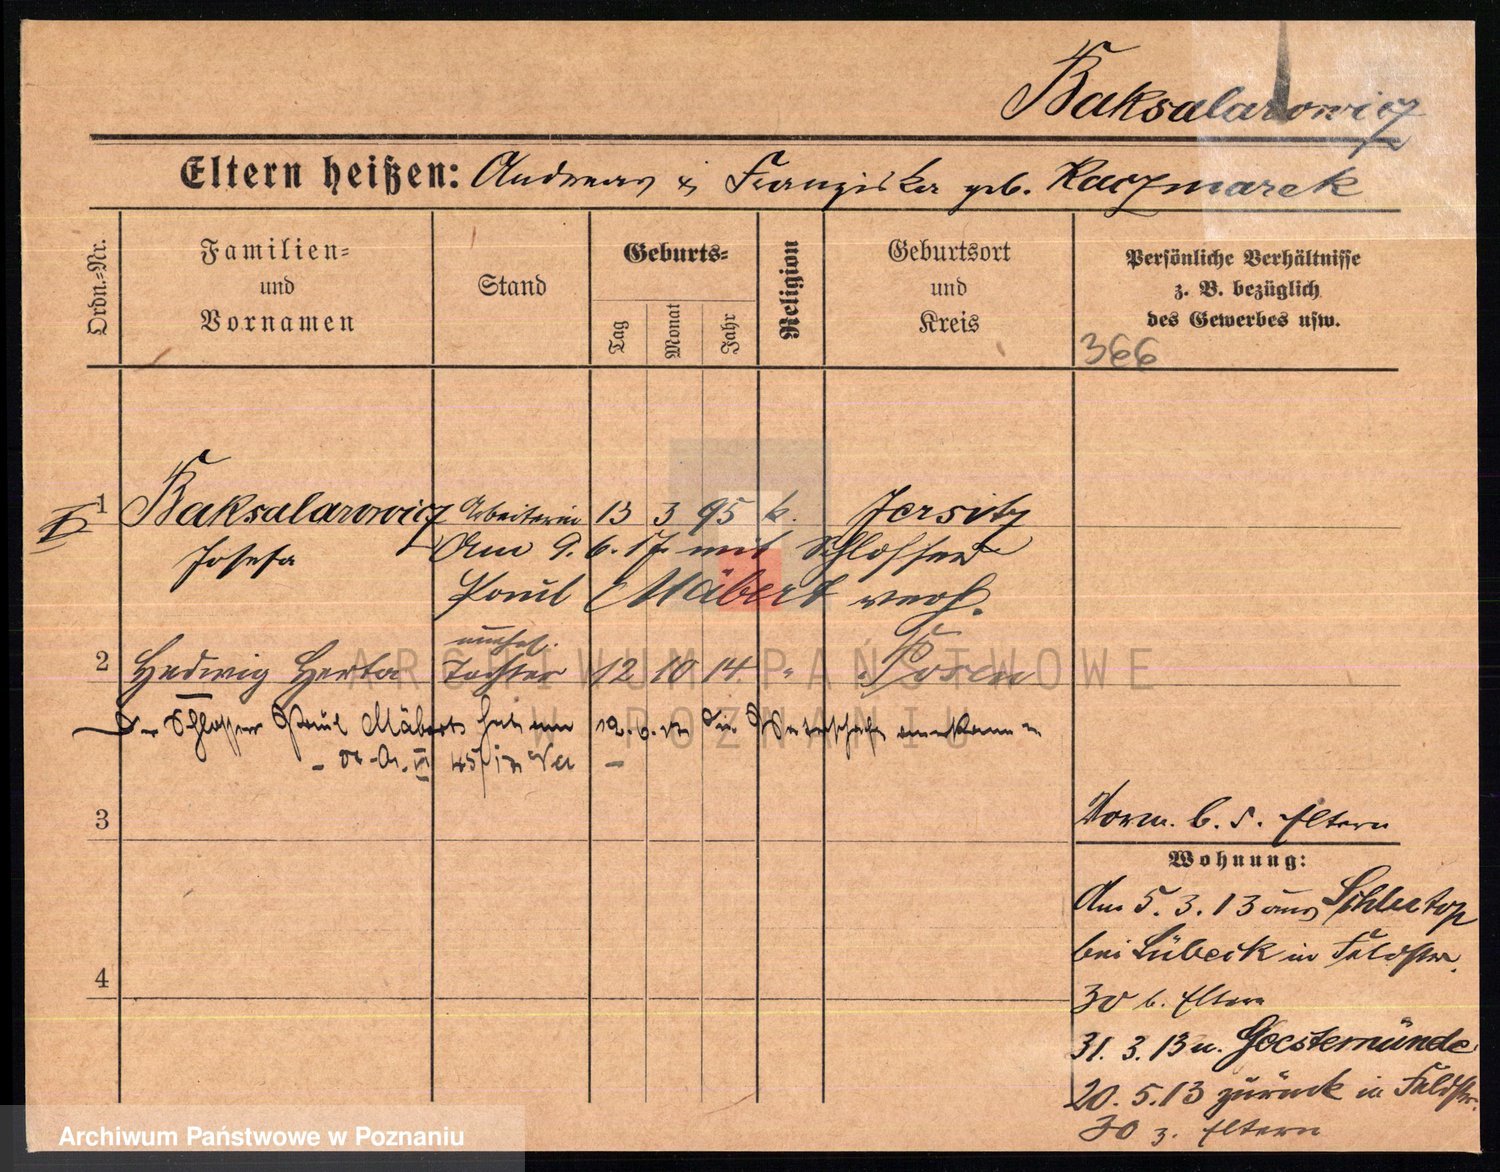 Baksalarowicz
Eltern heißen: Andreas & Franziska geb. Kaczmarek
Ordn.-Nr.
Familien-
und
Vornamen
Stand
Geburts-
Tag
Monat
Jahr
Religion
Geburtsort
und
Kreis
Persönliche Verhältnisse
z. B. bezüglich
des Gewerbes usw.
366
1 Baksalarowicz Arbeiterin 13 3 95 k. Jersitz
Josefa
Am 9. 6. 17 mit Schlosser
Paul Mäbert verh.
2 Hedwig Herta unehel. Tochter 12 10 14 " Posen
Der Schlosser Paul Mäbert hat am 12. 6. 17 die Vaterschaft anerkannt
3
4
Vorm. b. d. Eltern
Wohnung:
Am 5. 3. 13 aus Schlutop
bei Lübeck in Feldstr.
30 b. Eltern
31. 3. 13 n. Geestemünde
20. 5. 13 zurück in Feldstr.
30 z. Eltern
ARCHIWUM PAŃSTWOWE
W POZNANIU
Archiwum Państwowe w Poznaniu